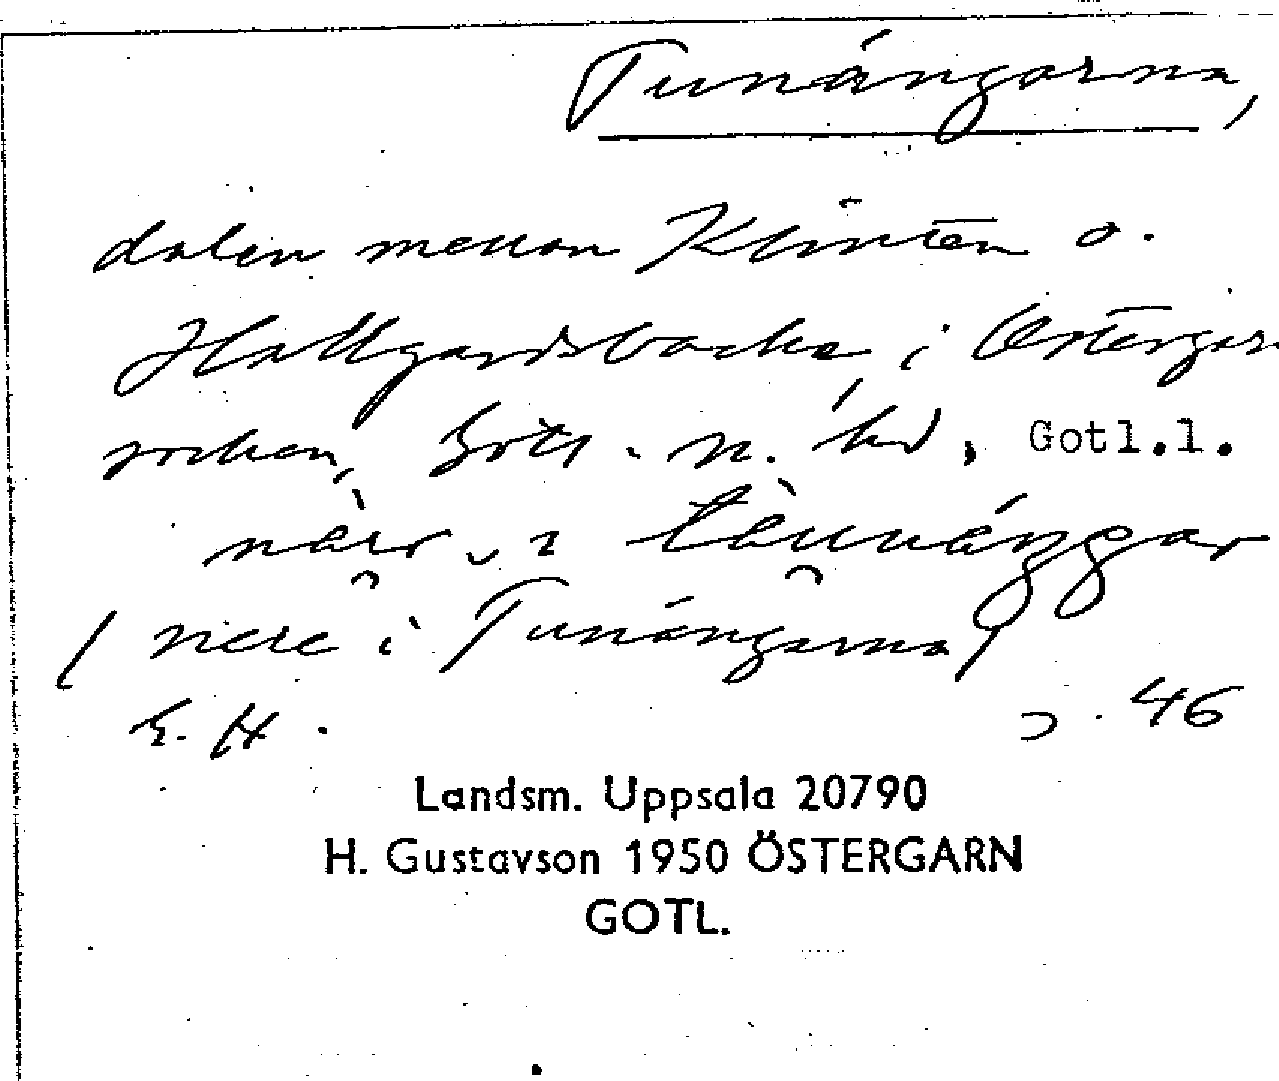 Tunängarna,
dalen mellan Klinten o.
Hallgardsbacke, i Östergarn
socken, Gotl. n. hd, Gotl.l.
(nere i Tunängarna)
E. H. s. 46
Landsm. Uppsala 20790
H. Gustavson 1950 ÖSTERGARN
GOTL.